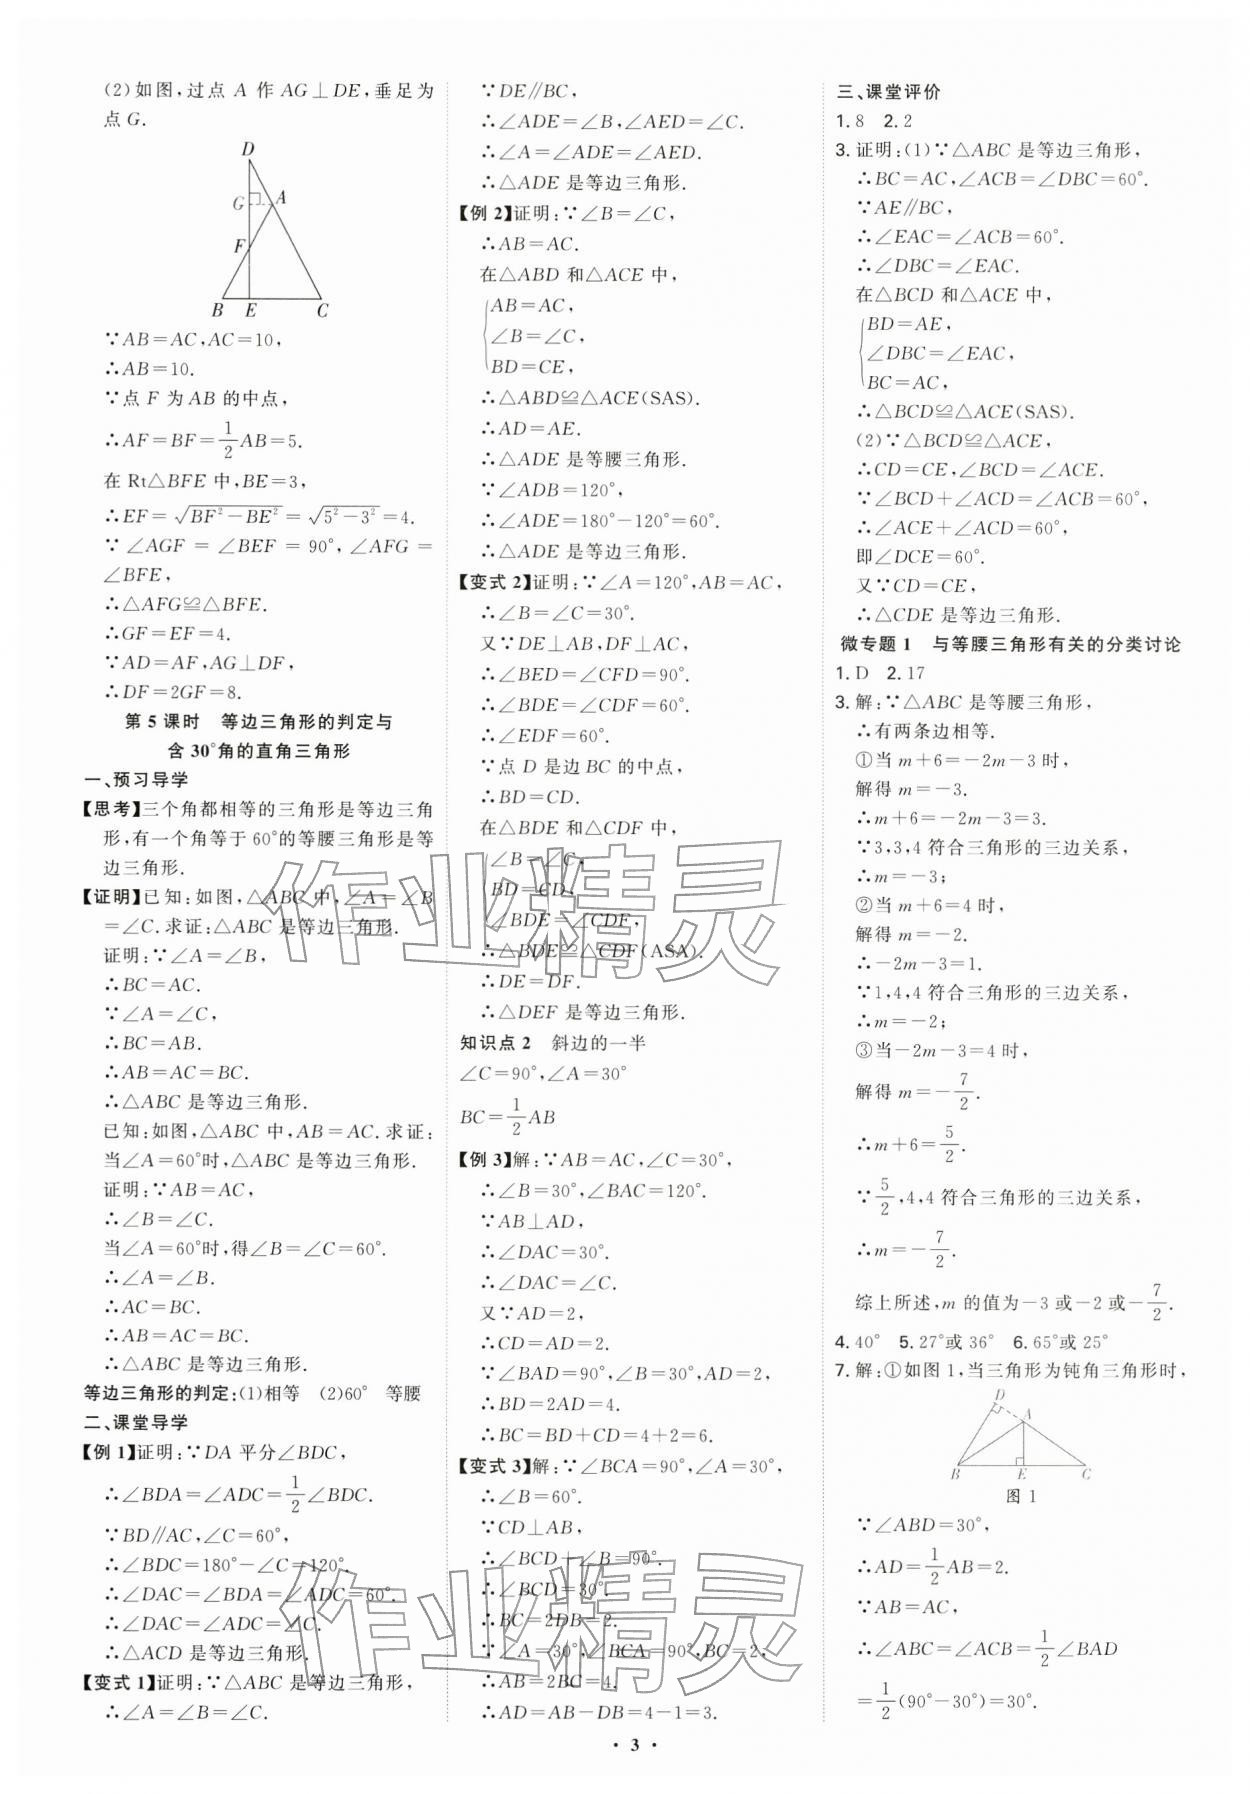 (2)如图,过点 A 作 AG⊥DE,垂足为
点 G.
D
G
A
F
B
E
C
∵AB=AC,AC=10,
∴AB=10.
∵点 F 为 AB 的中点,
∴AF=BF=1/2AB=5.
在 Rt△BFE 中,BE=3,
∴EF=√(BF²-BE²)=√(5²-3²)=4.
∵∠AGF=∠BEF=90°,∠AFG=
∠BFE,
∴△AFG≌△BFE.
∴GF=EF=4.
∵AD=AF,AG⊥DF,
∴DF=2GF=8.
第 5 课时 等边三角形的判定与
含 30°角的直角三角形
一、预习导学
【思考】三个角都相等的三角形是等边三角
形,有一个角等于 60°的等腰三角形是等
边三角形.
【证明】已知:如图,△ABC 中,∠A=∠B
=∠C.求证:△ABC 是等边三角形.
证明:∵∠A=∠B,
∴BC=AC.
∵∠A=∠C,
∴BC=AB.
∴AB=AC=BC.
∴△ABC 是等边三角形.
已知:如图,△ABC 中,AB=AC.求证:
当∠A=60°时,△ABC 是等边三角形.
证明:∵AB=AC,
∴∠B=∠C.
当∠A=60°时,得∠B=∠C=60°.
∴∠A=∠B.
∴AC=BC.
∴AB=AC=BC.
∴△ABC 是等边三角形.
等边三角形的判定:(1)相等 (2)60° 等腰
二、课堂导学
【例 1】证明:∵DA 平分∠BDC,
∴∠BDA=∠ADC=1/2∠BDC.
∵BD∥AC,∠C=60°,
∴∠BDC=180°-∠C=120°.
∴∠DAC=∠BDA=∠ADC=60°.
∴∠DAC=∠ADC=∠C.
∴△ACD 是等边三角形.
【变式 1】证明:∵△ABC 是等边三角形,
∴∠A=∠B=∠C.
∵DE∥BC,
∴∠ADE=∠B,∠AED=∠C.
∴∠A=∠ADE=∠AED.
∴△ADE 是等边三角形.
【例 2】证明:∵∠B=∠C,
∴AB=AC.
在△ABD 和△ACE 中,
AB=AC,
∠B=∠C,
BD=CE,
∴△ABD≌△ACE(SAS).
∴AD=AE.
∴△ADE 是等腰三角形.
∵∠ADB=120°,
∴∠ADE=180°-120°=60°.
∴△ADE 是等边三角形.
【变式 2】证明:∵∠A=120°,AB=AC,
∴∠B=∠C=30°.
又∵DE⊥AB,DF⊥AC,
∴∠BED=∠CFD=90°.
∴∠BDE=∠CDF=60°.
∴∠EDF=60°.
∵点 D 是边 BC 的中点,
∴BD=CD.
在△BDE 和△CDF 中,
∠B=∠C,
BD=CD,
∠BDE=∠CDF,
∴△BDE≌△CDF(ASA).
∴DE=DF.
∴△DEF 是等边三角形.
知识点 2 斜边的一半
∠C=90°,∠A=30°
BC=1/2AB
【例 3】解:∵AB=AC,∠C=30°,
∴∠B=30°,∠BAC=120°.
∵AB⊥AD,
∴∠DAC=30°.
∴∠DAC=∠C.
又∵AD=2,
∴CD=AD=2.
∵∠BAD=90°,∠B=30°,AD=2,
∴BD=2AD=4.
∴BC=BD+CD=4+2=6.
【变式 3】解:∵∠BCA=90°,∠A=30°,
∴∠B=60°.
∵CD⊥AB,
∴∠BCD+∠B=90°.
∴∠BCD=30°.
∴BC=2DB=2.
∵∠A=30°,∠BCA=90°,BC=2,
∴AB=2BC=4.
∴AD=AB-DB=4-1=3.
三、课堂评价
1.8 2.2
3.证明:(1)∵△ABC 是等边三角形,
∴BC=AC,∠ACB=∠DBC=60°.
∵AE∥BC,
∴∠EAC=∠ACB=60°.
∴∠DBC=∠EAC.
在△BCD 和△ACE 中,
BD=AE,
∠DBC=∠EAC,
BC=AC,
∴△BCD≌△ACE(SAS).
(2)∵△BCD≌△ACE,
∴CD=CE,∠BCD=∠ACE.
∵∠BCD+∠ACD=∠ACB=60°,
∴∠ACE+∠ACD=60°,
即∠DCE=60°.
又∵CD=CE,
∴△CDE 是等边三角形.
微专题 1 与等腰三角形有关的分类讨论
1.D 2.17
3.解:∵△ABC 是等腰三角形,
∴有两条边相等.
①当 m+6=-2m-3 时,
解得 m=-3.
∴m+6=-2m-3=3.
∵3,3,4 符合三角形的三边关系,
∴m=-3;
②当 m+6=4 时,
解得 m=-2.
∴-2m-3=1.
∵1,4,4 符合三角形的三边关系,
∴m=-2;
③当-2m-3=4 时,
解得 m=-7/2.
∴m+6=5/2.
∵5/2,4,4 符合三角形的三边关系,
∴m=-7/2.
综上所述,m 的值为-3 或-2 或-7/2.
4.40° 5.27°或 36° 6.65°或 25°
7.解:①如图 1,当三角形为钝角三角形时,
D
A
B
E
C
图 1
∵∠ABD=30°,
∴AD=1/2AB=2.
∵AB=AC,
∴∠ABC=∠ACB=1/2∠BAD
=1/2(90°-30°)=30°.
· 3 ·
作业精灵
作业精灵